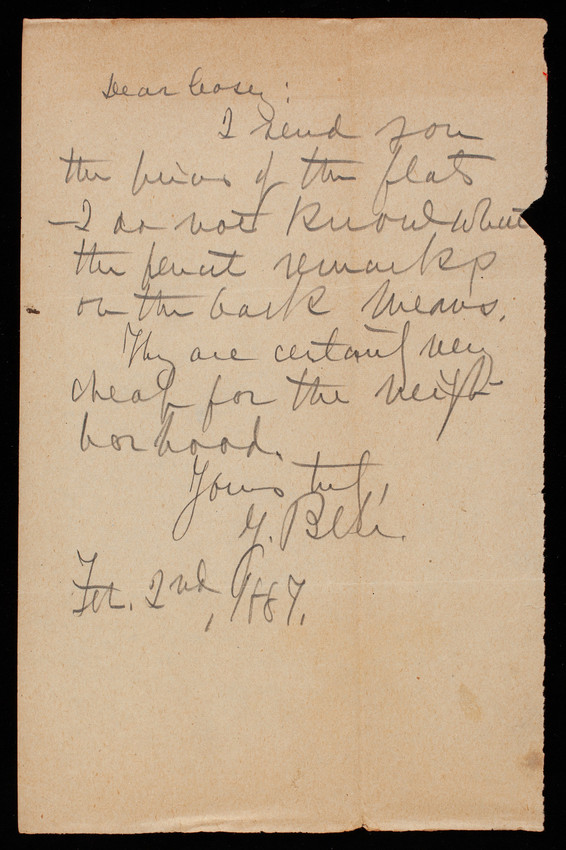 Dear Casey:
I send you
the prices of the flats
— I do not know what
the pencil remarks
on the back means.
They are certainly very
cheap for the neigh-
borhood.
Yours truly,
Feb. 2nd, 1887.